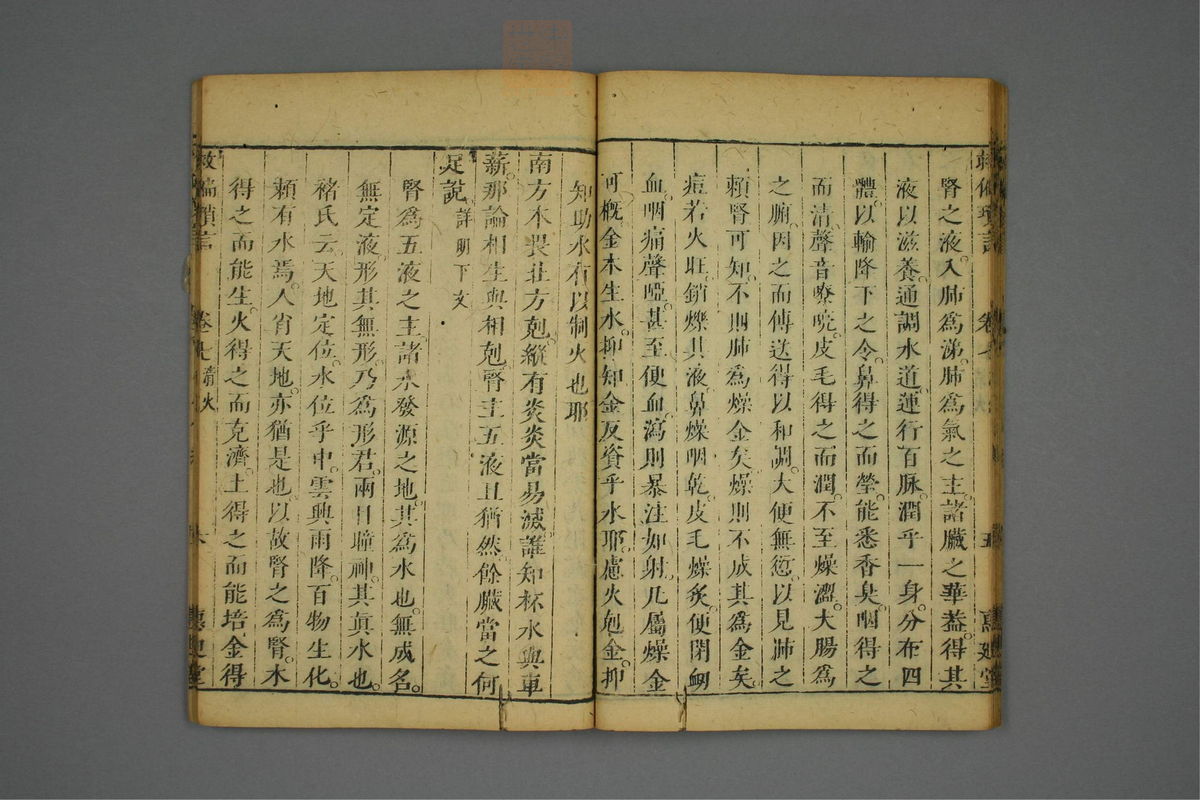 腎之液入肺爲涕肺爲氣之主諸臟之華葢得其
液以滋養通調水道運行百脉潤乎一身分布四
體以輸降下之令鼻得之而瑩能悉香臭咽得之
而清聲音嘹喨皮毛得之而潤不至燥澀大腸爲
之腑因之而傳送得以和調大便無愆以見肺之
頼腎可知不則肺爲燥金矣燥則不成其爲金矣
痘若火旺銷爍其液鼻燥咽乾皮毛燥炙便閉衂
血咽痛聲啞甚至便血瀉則暴注如射凡屬燥金
可概金本生水抑知金反資乎水耶慮火剋金抑
知助水有以制火也耶
南方本畏北方剋縱有炎炎當易滅誰知杯水與車
薪那論相生與相剋腎主五液且猶然餘臟當之何
足說詳明下文
腎爲五液之主諸水發源之地其爲水也無成名
無定液形其無形乃爲形君兩目瞳神其眞水也
褚氏云天地定位水位乎中雲興雨降百物生化
頼有水焉人肖天地亦猶是也以故腎之爲腎木
得之而能生火得之而克濟土得之而能培金得
救偏瑣言 卷七 六